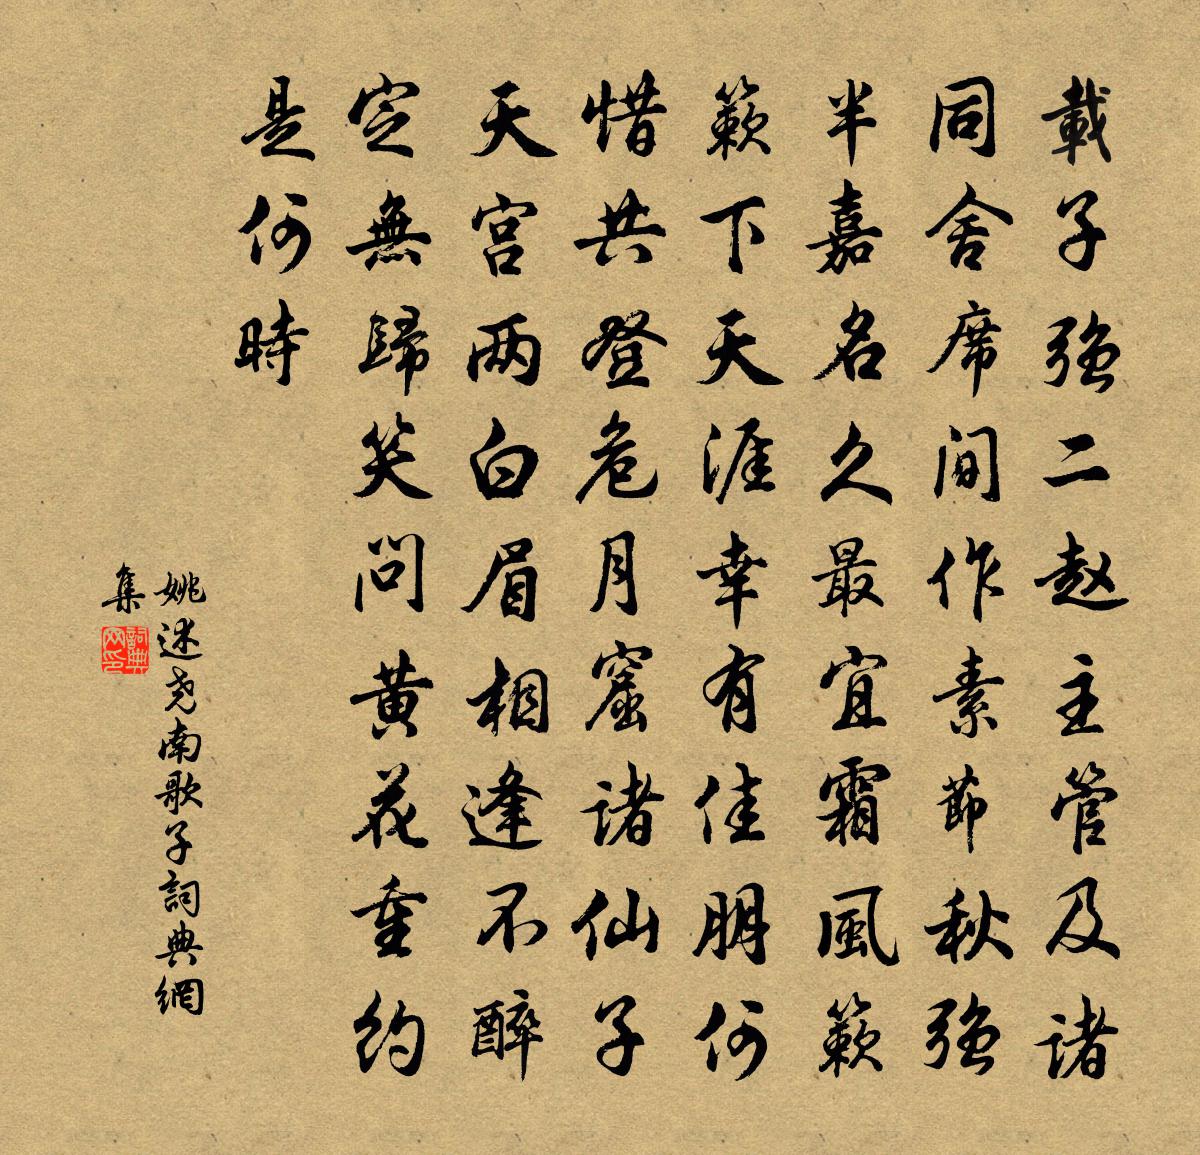 載子強二赵主管及諸
同舍席間作素節秋強
半嘉名久最宜霜風簌
簌下天涯幸有佳朋何
惜共登危月窟諸仙子
天宮两白眉相逢不醉
定無歸笑問黃花重約
是何時
姚述尧南歌子詞典網
集
詞典网印